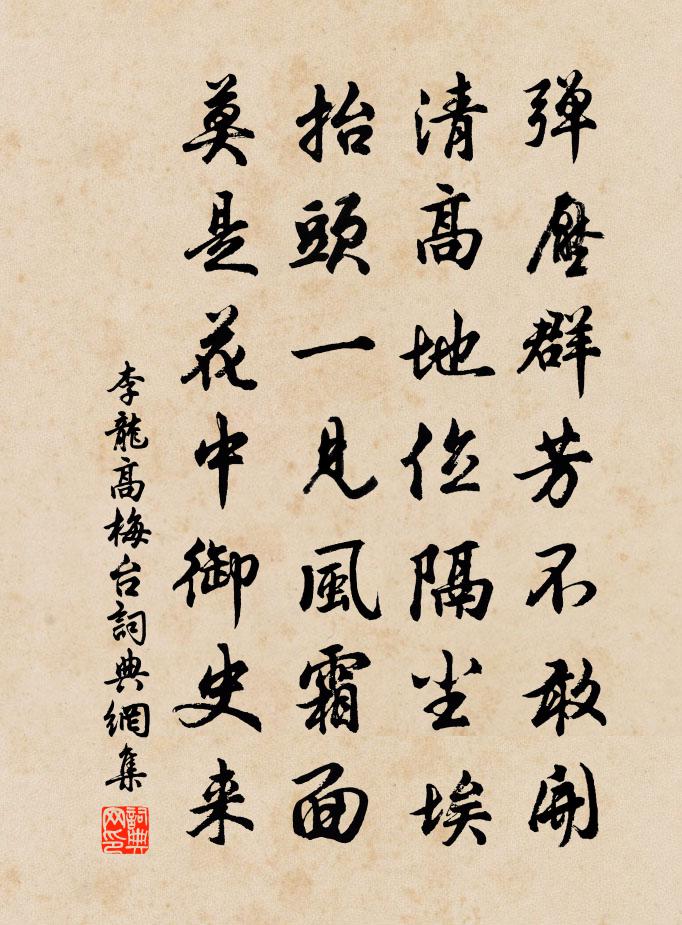 弹壓群芳不敢開
清高地位隔尘埃
抬頭一見風霜面
莫是花中御史来
李龍高梅台詞典網集
詞典网印